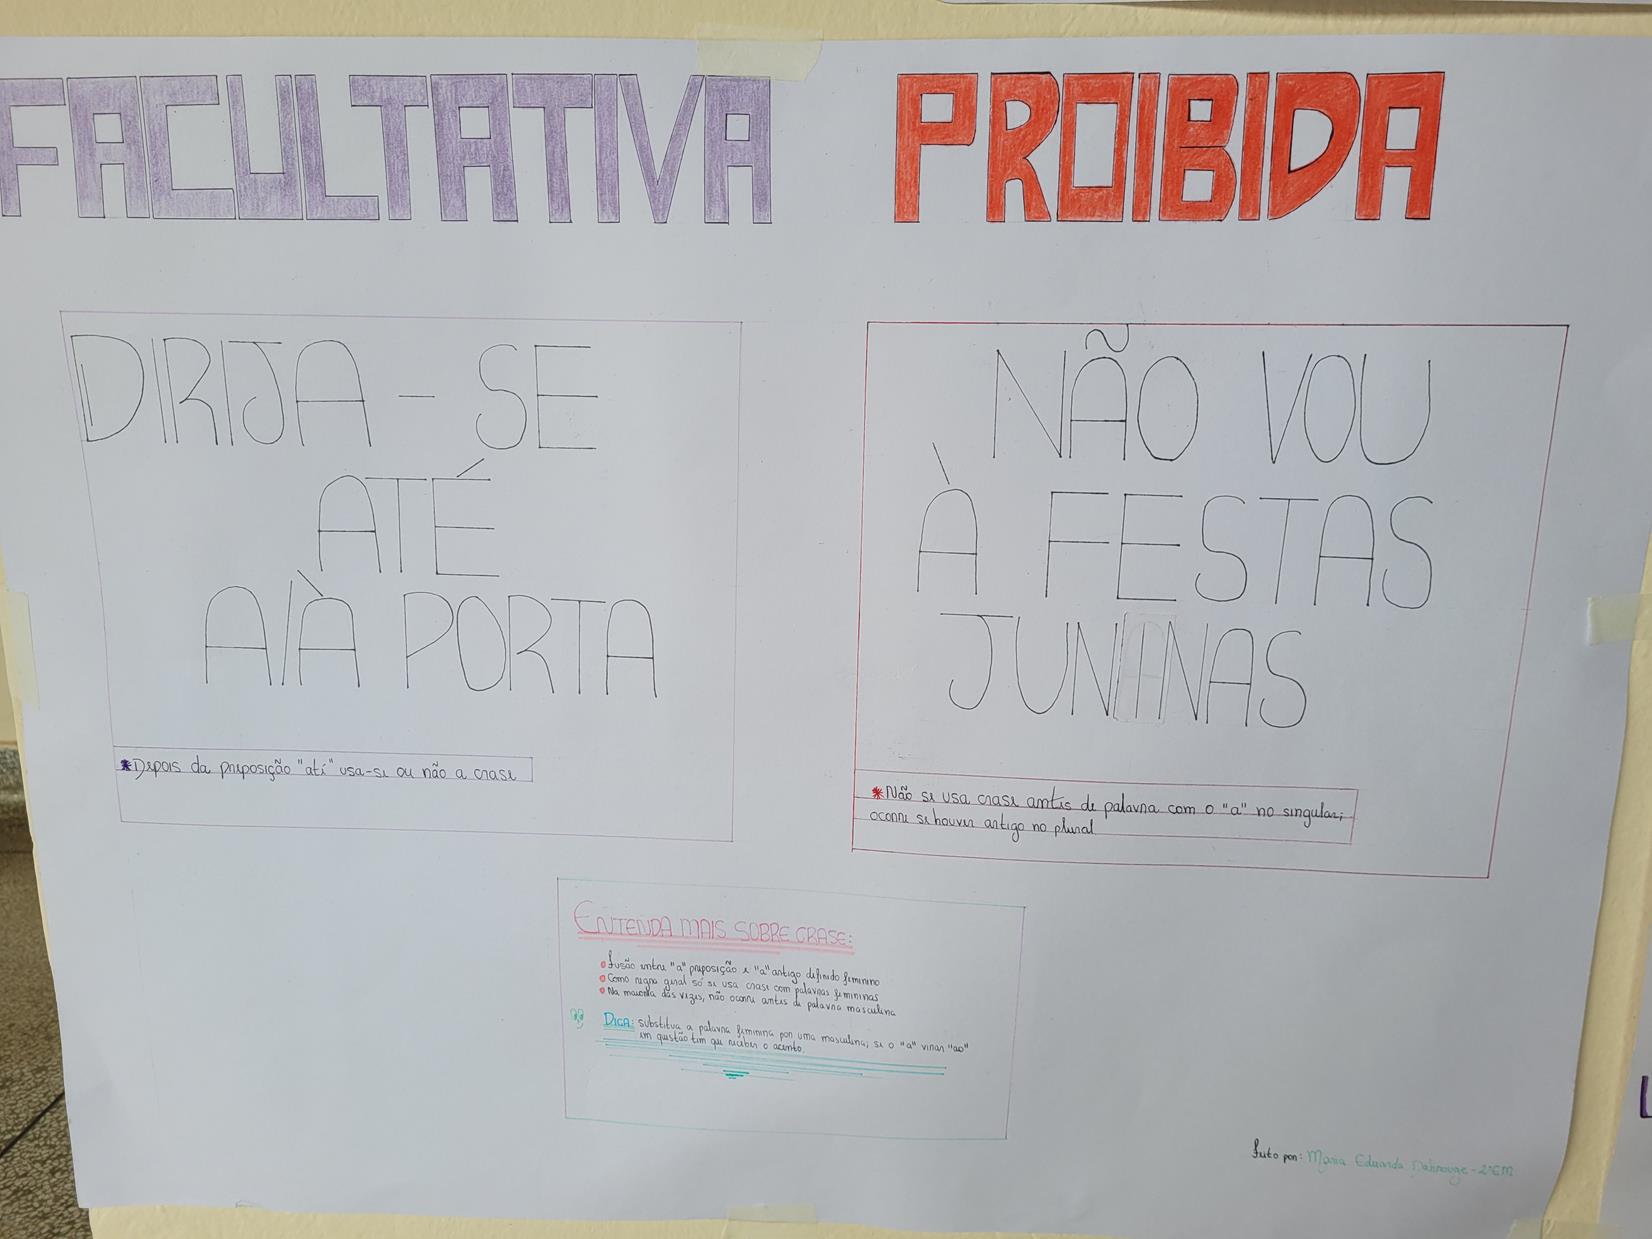 FACULTATIVA
DIRIJA-SE
ATÉ
A/À PORTA
*Depois da preposição "até" usa-se ou não a crase
PROIBIDA
NÃO VOU
À FESTAS
JUNINAS
*Não se usa crase antes de palavra com o "a" no singular;
ocorre se houver artigo no plural
ENTENDA MAIS SOBRE CRASE:
fusão entre "a" preposição e "a" artigo definido feminino
Como regra geral só se usa crase com palavras femininas
Na maioria das vezes, não ocorre antes de palavra masculina
DICA: substitua a palavra feminina por uma masculina; se o "a" virar "ao"
em questão tem que receber o acento.
feito por: Maria Eduarda - 2ºEM